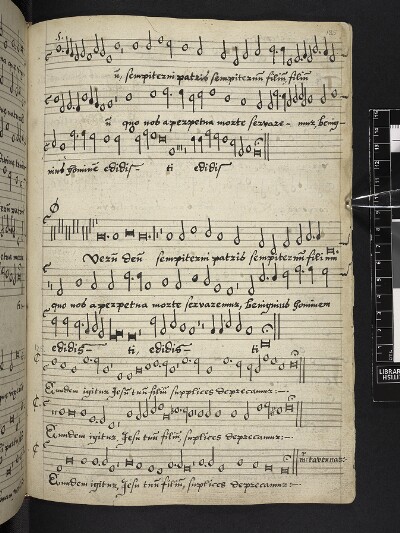 ū, sempiterni patris sempiternū filiū filiū
ū quo nos a perpetua morte servare- mur benig-
nus hominē edidis- ti edidis
Verū deū sempiterni patris sempiternū filiū
quo nos a perpetua morte servaremur, benignus hominem
edidis- ti, edidis- ti
Eundem igitur Jesū tuū filiū supplices deprecamur:-
Eundem igitur, Jesu tuū filiū, suplices deprecamur:-
Eundem igitur, Jesu tuū filiū, suplices deprecamur:-
mr tavernar:
LIBRAR